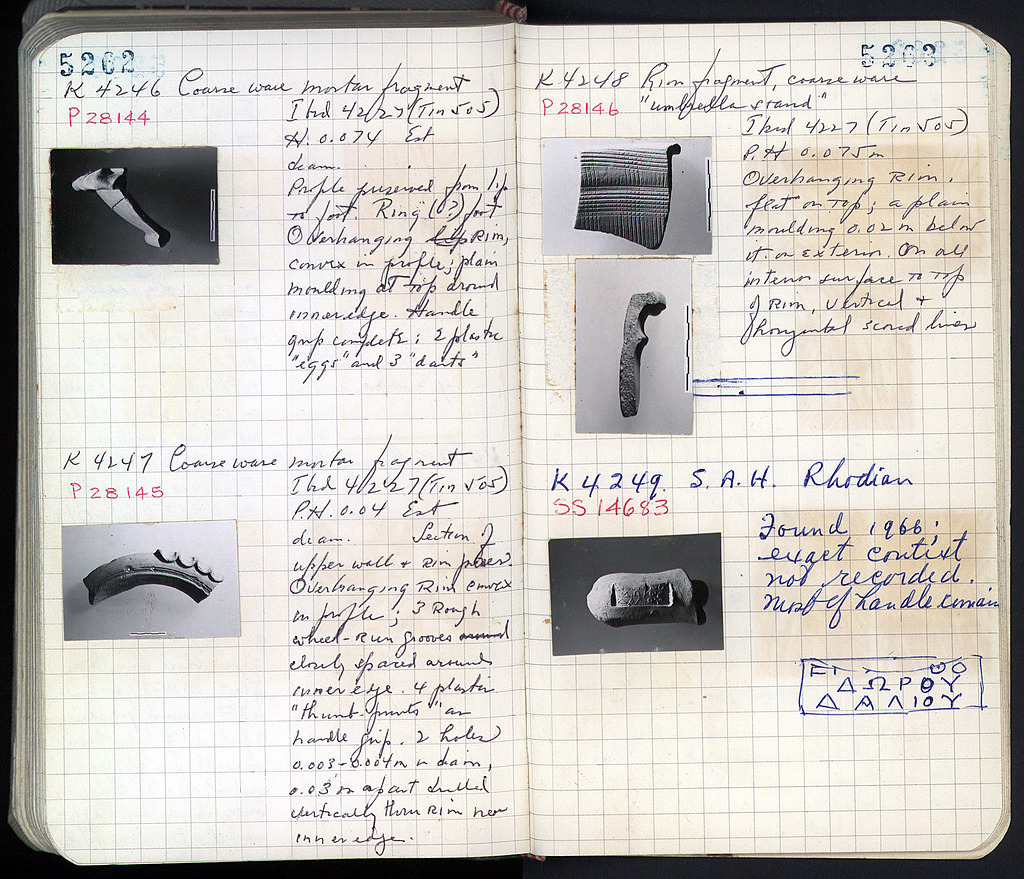 5262
K 4246 Coarse ware mortar fragment
P 28144
Ibid 42/27 (Tin 505)
H. 0.074 Est
diam.
Profile preserved from lip
to foot. Ring (?) foot
Overhanging lip Rim,
convex in profile; plain
moulding at top around
inner edge. Handle
grip complete; 2 plastic
"eggs" and 3 "darts"
K 4247 Coarse ware mortar fragment
P 28145
Ibid 42/27 (Tin 505)
P.H. 0.04 Est
diam. Section of
upper wall + Rim preser.
Overhanging Rim convex
in profile; 3 Rough
wheel-Run grooves around
closely spaced around
inner edge. 4 plastic
"thumb-prints" as
handle grip. 2 holes
0.003-0.004m in diam,
0.03 m apart drilled
vertically thru Rim near
inner edge.
5263
K 4248 Rim fragment, coarse ware
P 28146 "umbrella stand"
Ibid 4227 (Tin 505)
P.H 0.075m
Overhanging Rim,
flat on top; a plain
moulding 0.02 m below
it on exterior. On all
interior surface to top
of Rim, vertical +
horizontal scored lines
K 4249. S.A.H. Rhodian
SS 14683
Found 1966;
exact context
not recorded.
Most of handle remains
ΕΠ ΟΟ
ΔΩΡΟΥ
ΔΑΛΙΟΥ